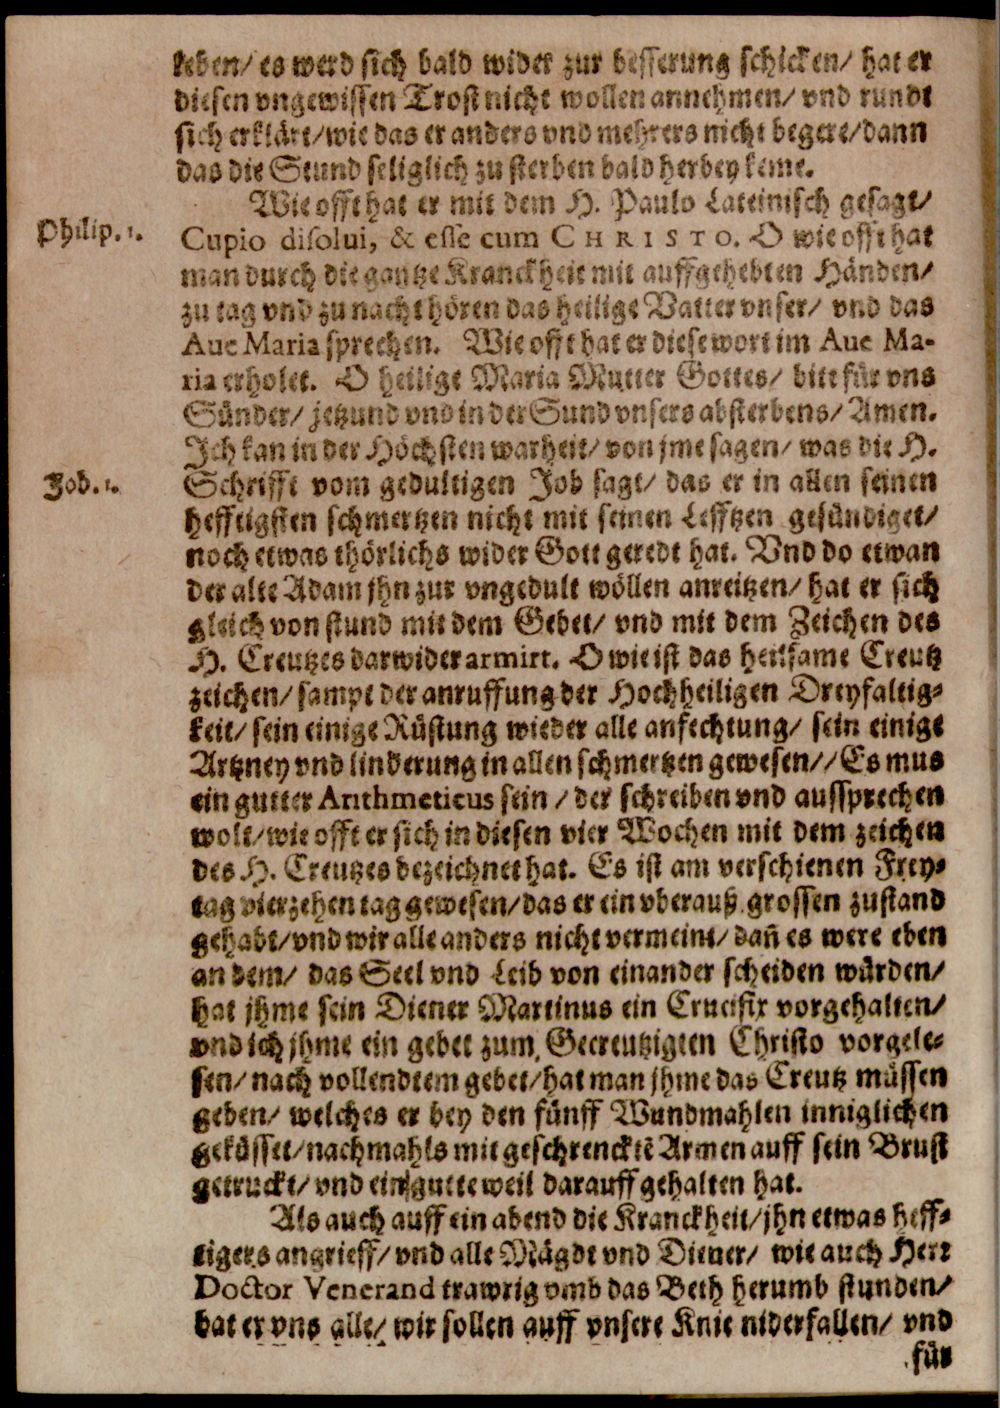 leben/ es werd sich bald wider zur besserung schicken/ hat er
diesen vngewissen Trost nicht wollen annehmen/ vnd rundt
sich erklärt/ wie das er anders vnd mehrers nicht begere/ dann
das die Stund seliglich zu sterben bald herbey keme.
Wie offt hat er mit dem H. Paulo Lateinisch gesagt/
Philip. 1.
Cupio disolui, & esse cum CHRISTO. O wie offt hat
man durch die gantze Kranckheit mit auffgehebten Händen/
zu tag vnd zu nacht hören das heilige Vatter vnser/ vnd das
Aue Maria sprechen. Wie offt hat er diese wort im Aue Ma-
ria erholet. O heilige Maria Mutter Gottes/ bitt für vns
Sünder/ jetzund vnd in der Sund vnsers absterbens/ Amen.
Ich kan in der Höchsten warheit/ von jme sagen/ was die H.
Job. 1.
Schrifft vom gedultigen Job sagt/ das er in allen seinen
hefftigsten schmertzen nicht mit seinen Lefftzen gesündiget/
noch etwas thörlichs wider Gott geredt hat. Vnd do etwan
der alte Adam jhn zur vngedult wöllen anreitzen/ hat er sich
gleich von stund mit dem Gebet/ vnd mit dem Zeichen des
H. Creutzes darwider armirt. O wie ist das heilsame Creutz
zeichen/ sampt der anruffung der Hochheiligen Dreyfaltig-
keit/ sein einige Rüstung wieder alle anfechtung/ sein einige
Artzney vnd linderung in allen schmertzen gewesen// Es mus
ein gutter Arithmeticus sein/ der schreiben vnd aussprechen
wolt/ wie offt er sich in diesen vier Wochen mit dem zeichen
des H. Creutzes bezeichnet hat. Es ist am verschienen Frey-
tag vierzehen tag gewesen/ das er ein vberauß grossen zustand
gehabt/ vnd wir alle anders nicht vermeint/ dañ es were eben
an dem/ das Seel vnd Leib von einander scheiden würden/
hat jhme sein Diener Martinus ein Crucifix vorgehalten/
vnd ich jhme ein gebet zum Gecreutzigten Christo vorgele-
sen/ nach vollendtem gebet/ hat man jhme das Creutz müssen
geben/ welches er bey den fünff Wundmahlen inniglichen
geküsset/ nachmahls mit geschrencktē Armen auff sein Brust
getruckt/ vnd ein gutte weil darauff gehalten hat.
Als auch auff ein abend die Kranckheit/ jhn etwas heff-
tigers angrieff/ vnd alle Mägdt vnd Diener/ wie auch Herr
Doctor Venerand trawrig vmb das Beth herumb stunden/
bat er vns alle/ wir sollen auff vnsere Knie niderfallen/ vnd
für